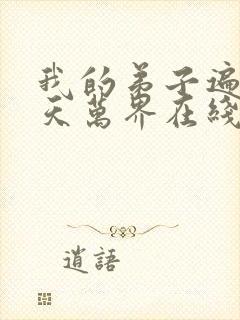 我的弟子遍
天萬界在綫
逍語